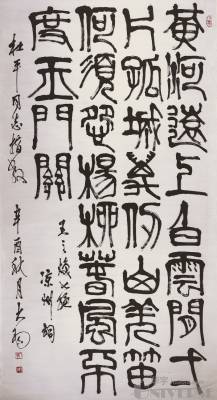 黃河遠上白雲間一
片孤城萬仞山羌笛
何須怨楊柳春風不
度玉門關
王之渙七絕
涼州詞
杜平同志指教
辛酉秋月大羽
UNIVERSE